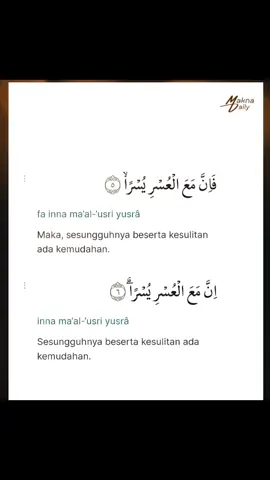 Makna
Daily
فَاِنَّ مَعَ الْعُسْرِ يُسْرًاۙ ۝٥
fa inna ma'al-'usri yusrā
Maka, sesungguhnya beserta kesulitan
ada kemudahan.
اِنَّ مَعَ الْعُسْرِ يُسْرًاۗ ۝٦
inna ma'al-'usri yusrā
Sesungguhnya beserta kesulitan ada
kemudahan.